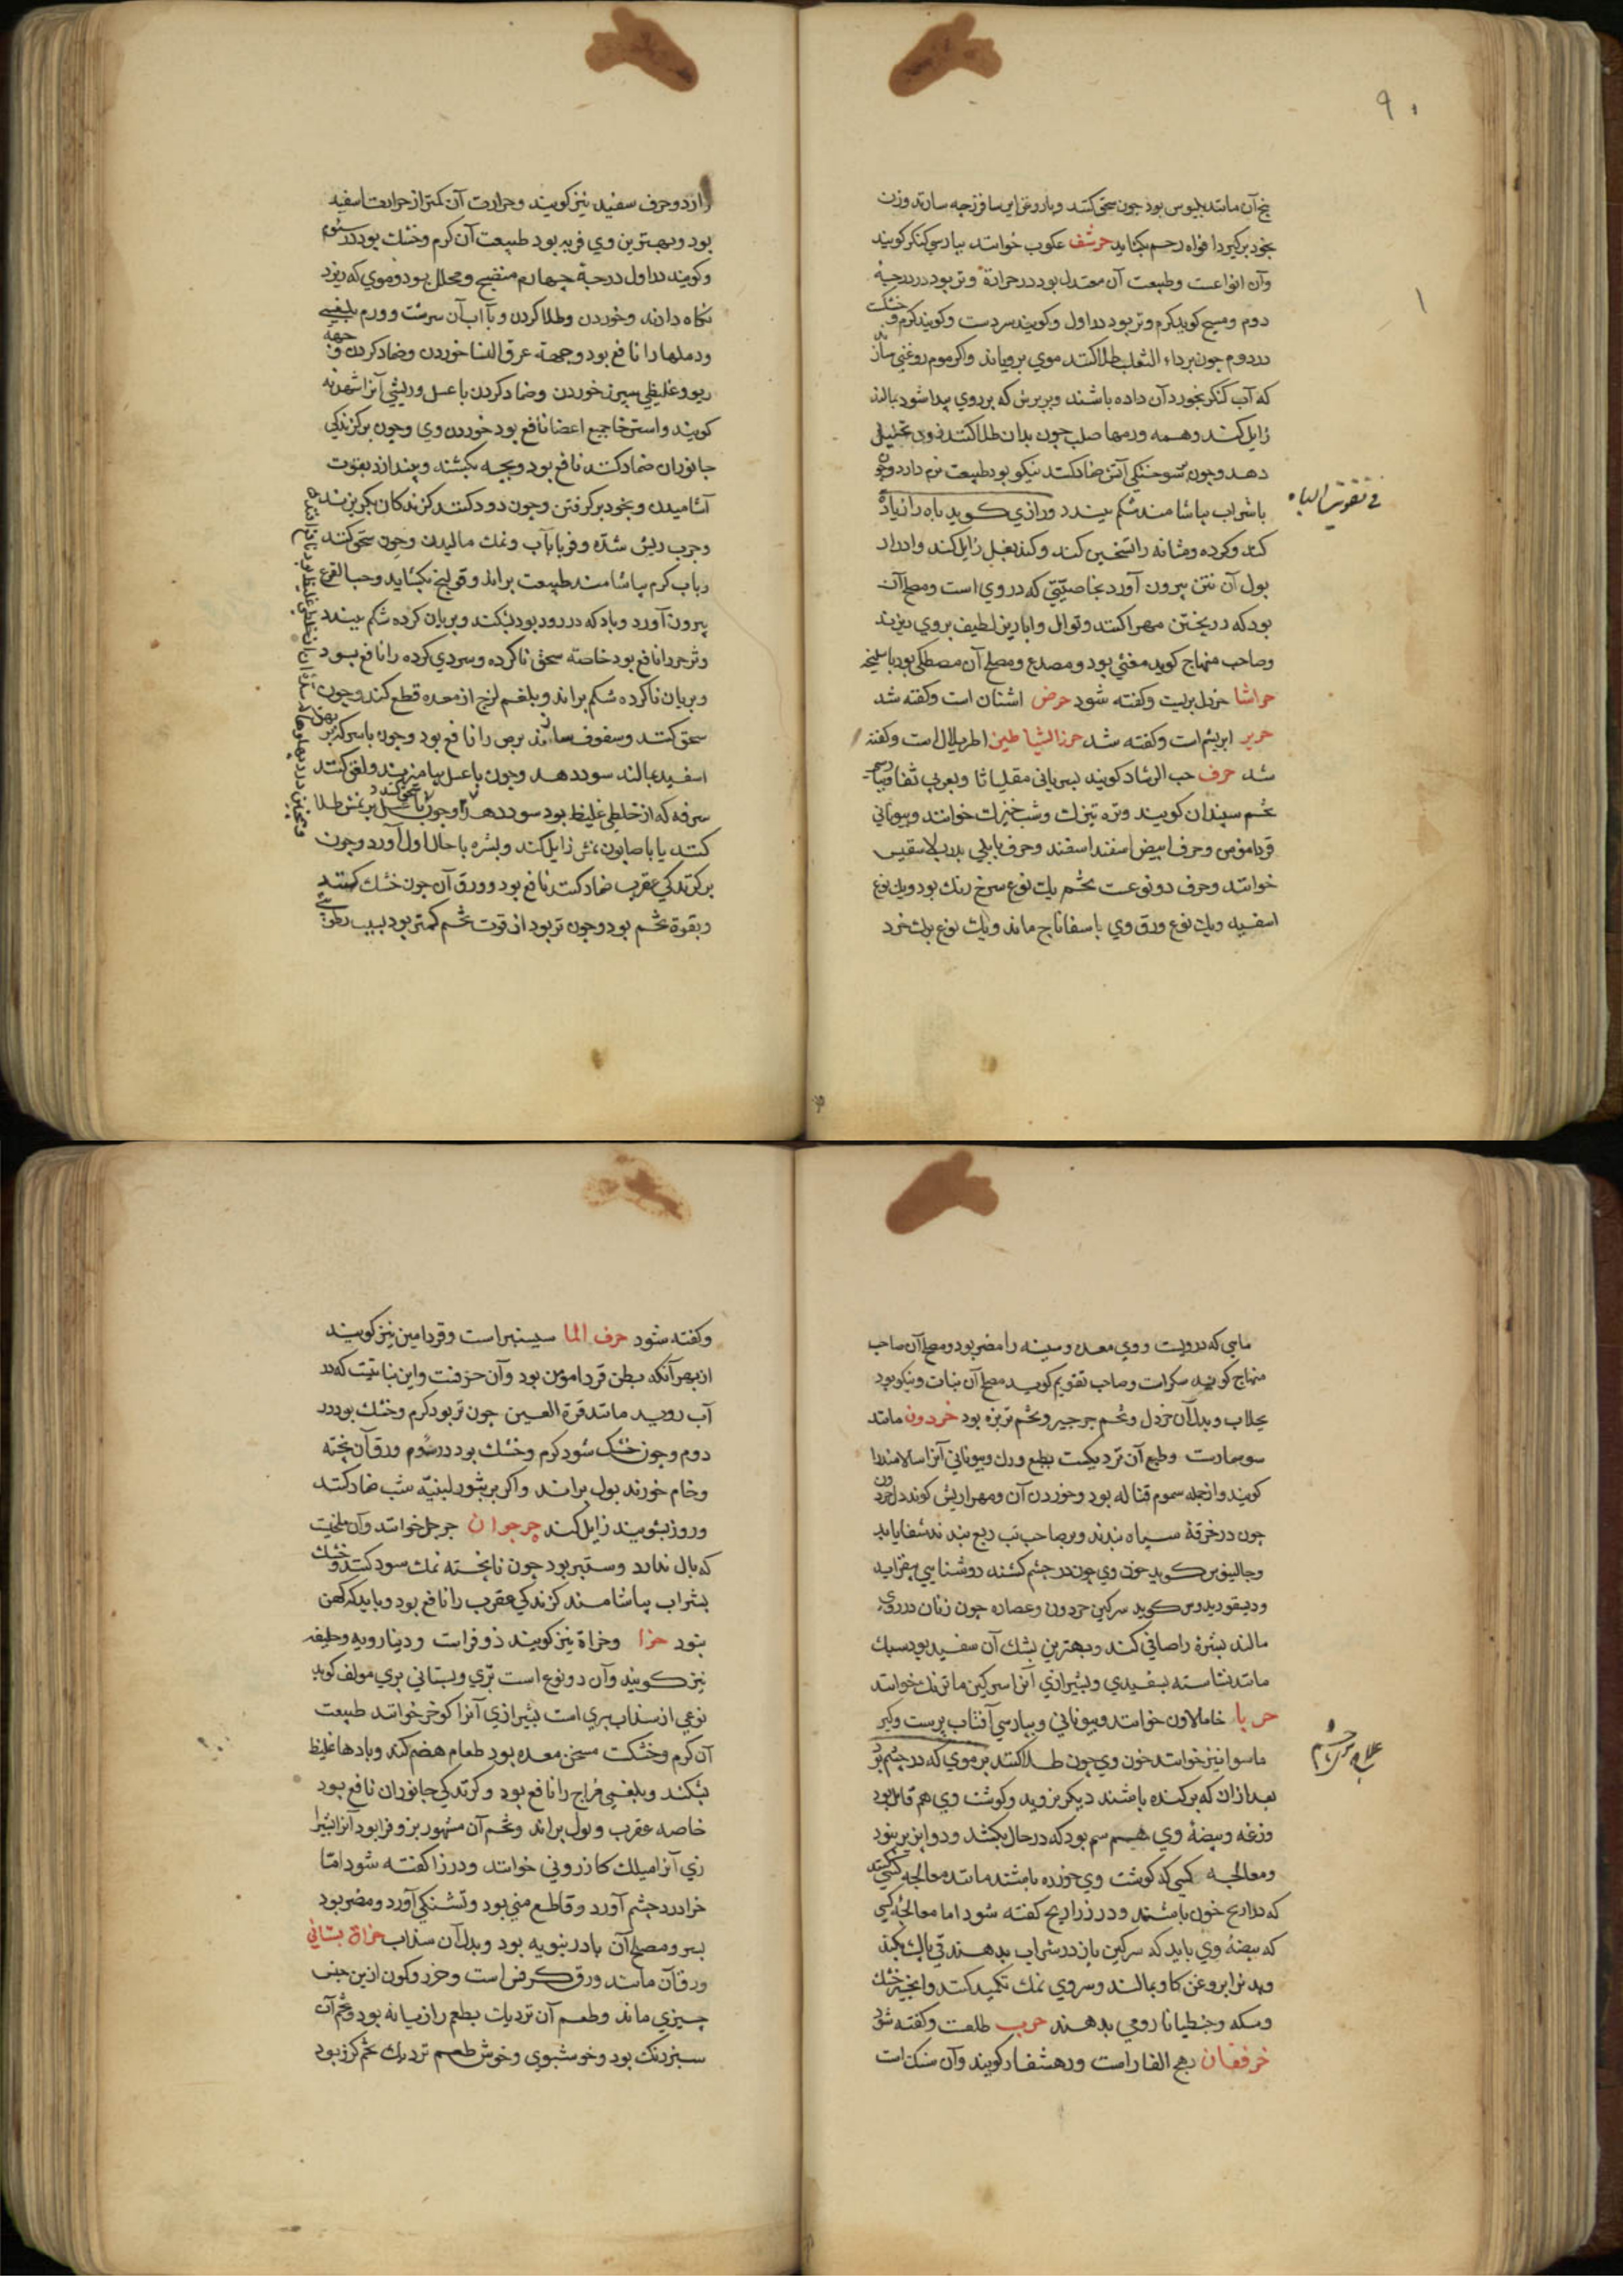 ۹۰
بیخ آن مانند بلبوس بود چون سحق کنند و با روغن ایرسا فرزجه سازند و زن
بخود برگیرد افواه رحم بگشاید حرشف عکوب خوانند بپارسی کنکر کویند
وآن انواعست وطبیعت آن معتدل بود در حرارة وتر بود در درجهٔ
دوم ومسیح کوید کرم وتر بود در اول وکویند سردست وکویند کرم وخشک
در دوم چون بر داء الثعلب طلا کنند موی برویاند واکر موم روغنی سازند
که آب کنکر بخورد آن داده باشند و بر برش که بر روی پیدا شود بمالند
زایل کند وهمه ورمها صلب چون بدان طلا کنند زود تحلیل
دهد وچون بر سوختکی آتش ضماد کنند نیکو بود طبیعت نرم دارد وچون
فی تقویت الباه
باشراب بیاشامند شکم ببندد ورازی کوید باه را زیادة
کند وکرده ومثانه را تسخین کند وکند بغل زایل کند وادرار
بول آن نتن بیرون آورد بخاصیّتی که در وی است ومصلح آن
بود که در پختن مهرا کنند وتوابل وابازیر لطیف بر وی ریزند
وصاحب منهاج کوید مغثی بود ومصدع ومصلح آن مصطکی بود با سلیخه
حراشا خردل بریست وکفته شود حرض اشنان است وکفته شد
حریر ابریشم است وکفته شد حرز الشیاطین اطریلال است وکفته
شد حرف حب الرشاد کویند بسریانی مقلیاثا وبعربی ثفا وبپارسی
تخم سپندان کویند وتره تیزک وشب خیزک خوانند وبیونانی
قردامومن وحرف ابیض اسفند اسفند وحرف بابلی بدرب لاسقیس
خوانند وحرف دو نوعست تخم یک نوع سرخ رنک بود ویک نوع
اسفید ویک نوع ورق وی باسفاناج ماند ویک نوع برک خرد
را از دو حرف سفید نیز کویند وحرارت آن کمتر از حرارت اسفید
بود وبهترین وی فربه بود طبیعت آن کرم وخشک بود در سوم
وکویند در اول درجهٔ چهارم منضج ومحلل بود وموی که ریزد
نکاه دارد وخوردن وطلا کردن وبا آب آن سرشت وورم بلغمی
ودملها را نافع بود وجهة عرق النسا خوردن وضماد کردن وجهة
ربو وغلیظی سپرز خوردن وضماد کردن با عسل وریشی آنرا شهدیه
کویند واسترخا جمیع اعضا نافع بود خوردن وی وچون بر کزندکی
جانوران ضماد کنند نافع بود وبچه بکشند وبیندازد بقوت
آشامیدن وبخود برکرفتن وچون دود کنند کزندکان بکریزند
وجرب ریش شده وقوبا بآب ونمک مالیدن وچون سحق کنند
وبآب کرم بیاشامند طبیعت براند وقولنج بکشاید وحب القرع
بیرون آورد وباد که در رود بود بشکند وبریان کرده شکم ببندد
وزحیر را نافع بود خاصه سحق ناکرده وسردی کرده را نافع بود
وبریان ناکرده شکم براند وبلغم لزج از معده قطع کند وچون
سحق کنند وسفوف سازند برص را نافع بود وچون با سرکه بر بهق
اسفید بمالند سود دهد وچون با عسل بیامیزند ولعق کنند
سرفه که از خلطی غلیظ بود سود دهد وچون با عسل سحق کنند بر نمش طلا
کنند یا با صابون نمش زایل کند وبشره با حال اول آورد وچون
بر کزندکی عقرب ضماد کنند نافع بود وورق آن چون خشک کنند
وبقوة تخم بود وچون تر بود از قوت تخم کمتر بود بسبب رطوبتی
ماهی که دروست ووی معده وسینه را مضر بود ومصلح آن صاحب
منهاج کوید سکراست وصاحب تقویم کوید مصلح آن نبات ونیکو بود
بجلاب وبدل آن خردل وتخم جرجیر وتخم تربزه بود حردون مانند
سوسمارست وطبع آن نزدیکست بطبع ورل وبیونانی آنرا سالامندرا
کویند واز جمله سموم قتاله بود وخوردن آن ومهراریش کوید دل حردون
چون در خرقهٔ سیاه بندند وبر صاحب تب ربع بندند شفا یابد
وجالینوس کوید خون وی چون در چشم کشند روشنایی بیفزاید
ودیسقوریدوس کوید سرکین حردون وعصاره چون زنان در روی
مالند بشرهٔ را صافی کند وبهترین بشک آن سفید بود سبک
مانند نشاسته بسفیدی وبشیرازی آنرا سرکین ماترنک خوانند
حربا خامالاون خوانند وبیونانی وبپارسی آفتاب پرست وکبر
ماسوا نیز خوانند خون وی چون طلا کنند بر موی که در چشم بود
بعد از آن که برکنده باشند دیکر نروید وکوشت وی هم قاتل بود
وزغه وبیضهٔ وی هم سم بود که در حال بکشد ودوا پذیر نبود
ومعالجه کسی که کوشت وی خورده باشند مانند معالجه کسی
که ذراریح خورده باشند ودر ذراریح کفته شود اما معالجهٔ کسی
که بیضهٔ وی باید که سرکین باز در شراب بدهند تا قی پاک بکند
وبدنرا بروغن کاو بمالند وسر وی نمک تکمید کنند وانجیر خشک
ومسکه وجنطیانا رومی بدهند حرب طلعست وکفته شود
خرفقان رهج الفار است ورهشفار کویند وآن سنک است
وکفته شود حرف الما سیسنبر است وقردامین نیز کویند
از بهر آنکه بطعم قردامومن بود وآن حرفست واین نباتیست که در
آب روید مانند قرة العین چون تر بود کرم وخشک بود در
دوم وچون خشک شود کرم وخشک بود در سوم ورق آن پخته
وخام خورند بول براند واکر بر بثور لبنیّه شب ضماد کنند
وروز بشویند زایل کند حرجوان جرجل خوانند وآن ملخیست
که بال ندارد وستبر بود چون ناپخته نمک سود کنند وخشک
بشراب بیاشامند کزندکی عقرب را نافع بود وباید که کهن
نبود حزا وحزاة نیز کویند ذوفراست ودینارویه وحلیفه
نیز کویند وآن دو نوع است برّی وبستانی بری مولف کوید
نوعی از سذاب بری است بشیرازی آنرا کوخر خوانند طبیعت
آن کرم وخشکست مسخن معده بود طعام هضم کند وبادها غلیظ
بشکند وبلغمی مزاج را نافع بود وکزندکی جانوران نافع بود
خاصه عقرب وبول براند وتخم آن مشهور بزوفرا بود آنرا بشیرا
زی آنرا میلک کازرونی خوانند ودر زا کفته شود امّا
حزا درد چشم آورد وقاطع منی بود وتشنکی آورد ومضر بود
بسر ومصلح آن بادرنبویه بود وبدل آن سذاب حزاة بستانی
ورق آن مانند ورق کرفس است وحزر وکون ازین جنس
چیزی ماند وطعم آن نزدیک بطعم رازیانه بود وتخم آن
سبز رنک بود وخوشبوی وخوش طعم نزدیک بتخم کرز بود